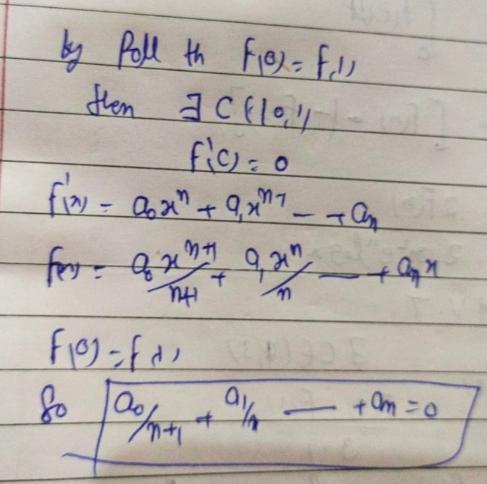 by Roll th F(0) = F(1)
then ∃ C ∈ (0,1)
F'(C) = 0
F'(x) = a₀xⁿ + a₁xⁿ⁻¹ — + aₙ
F(x) = a₀xⁿ⁺¹/n+1 + a₁xⁿ/n — + aₙx
F(0) = F(1)
So a₀/n+1 + a₁/n — + aₙ = 0